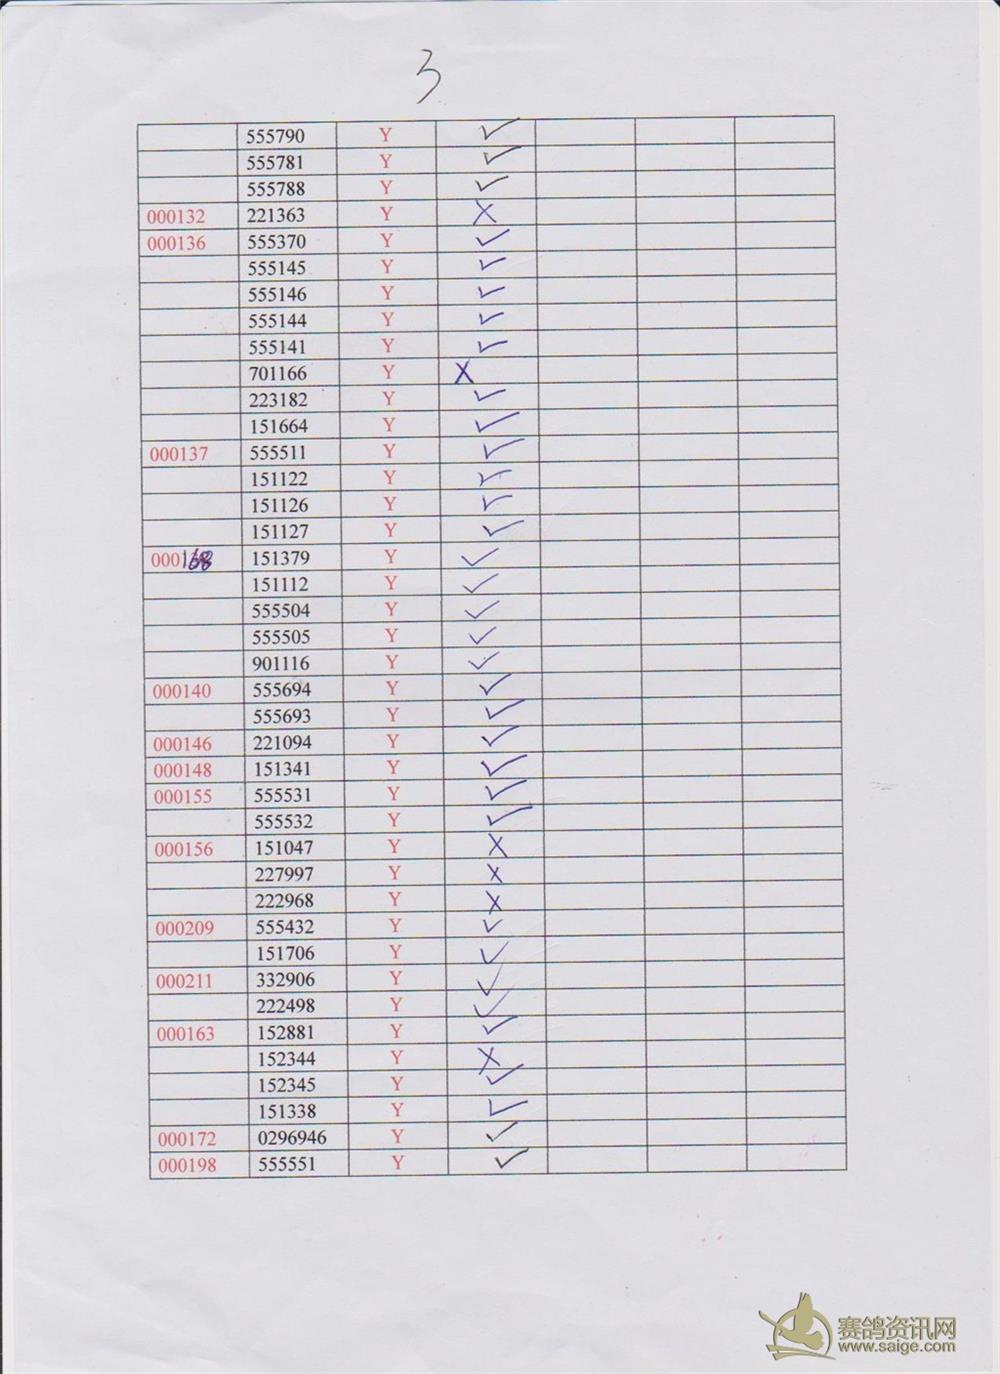 3
555790 Y ✓
555781 Y ✓
555788 Y ✓
000132 221363 Y X
000136 555370 Y ✓
555145 Y ✓
555146 Y ✓
555144 Y ✓
555141 Y ✓
701166 Y X
223182 Y ✓
151664 Y ✓
000137 555511 Y ✓
151122 Y ✓
151126 Y ✓
151127 Y ✓
000168 151379 Y ✓
151112 Y ✓
555504 Y ✓
555505 Y ✓
901116 Y ✓
000140 555694 Y ✓
555693 Y ✓
000146 221094 Y ✓
000148 151341 Y ✓
000155 555531 Y ✓
555532 Y ✓
000156 151047 Y X
227997 Y X
222968 Y X
000209 555432 Y ✓
151706 Y ✓
000211 332906 Y ✓
222498 Y ✓
000163 152881 Y ✓
152344 Y X
152345 Y ✓
151338 Y ✓
000172 0296946 Y ✓
000198 555551 Y ✓
赛鸽资讯网
www.saige.com